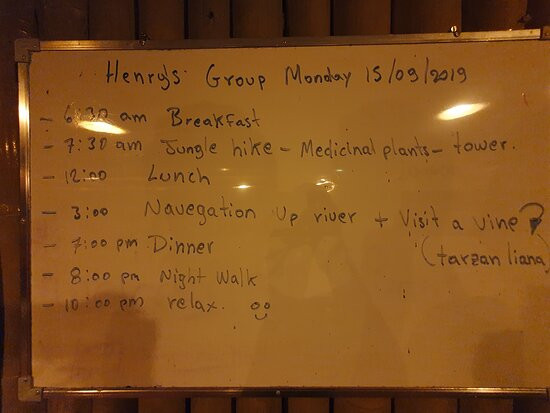 Henry's Group Monday 15/09/2019
- 6:30 am Breakfast
- 7:30 am Jungle hike - Medicinal plants - tower.
- 12:00 Lunch
- 3:00 Navegation Up river + Visit a vine?
(tarzan liana)
- 7:00 pm Dinner
- 8:00 pm Night Walk
- 10:00 pm relax.